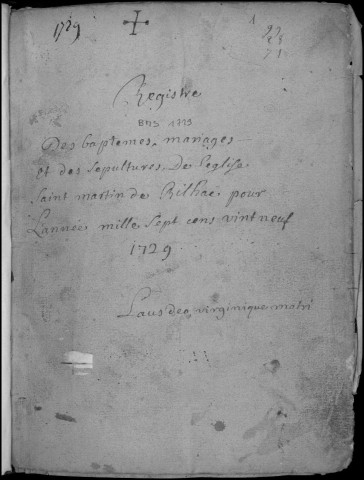 1729
Registre
BMS 1729
Des baptemes, mariages
et des sepultures De leglise
saint martin de Bilhac pour
Lannée mille sept cens vint neuf
1729
Laus deo, virginique matri